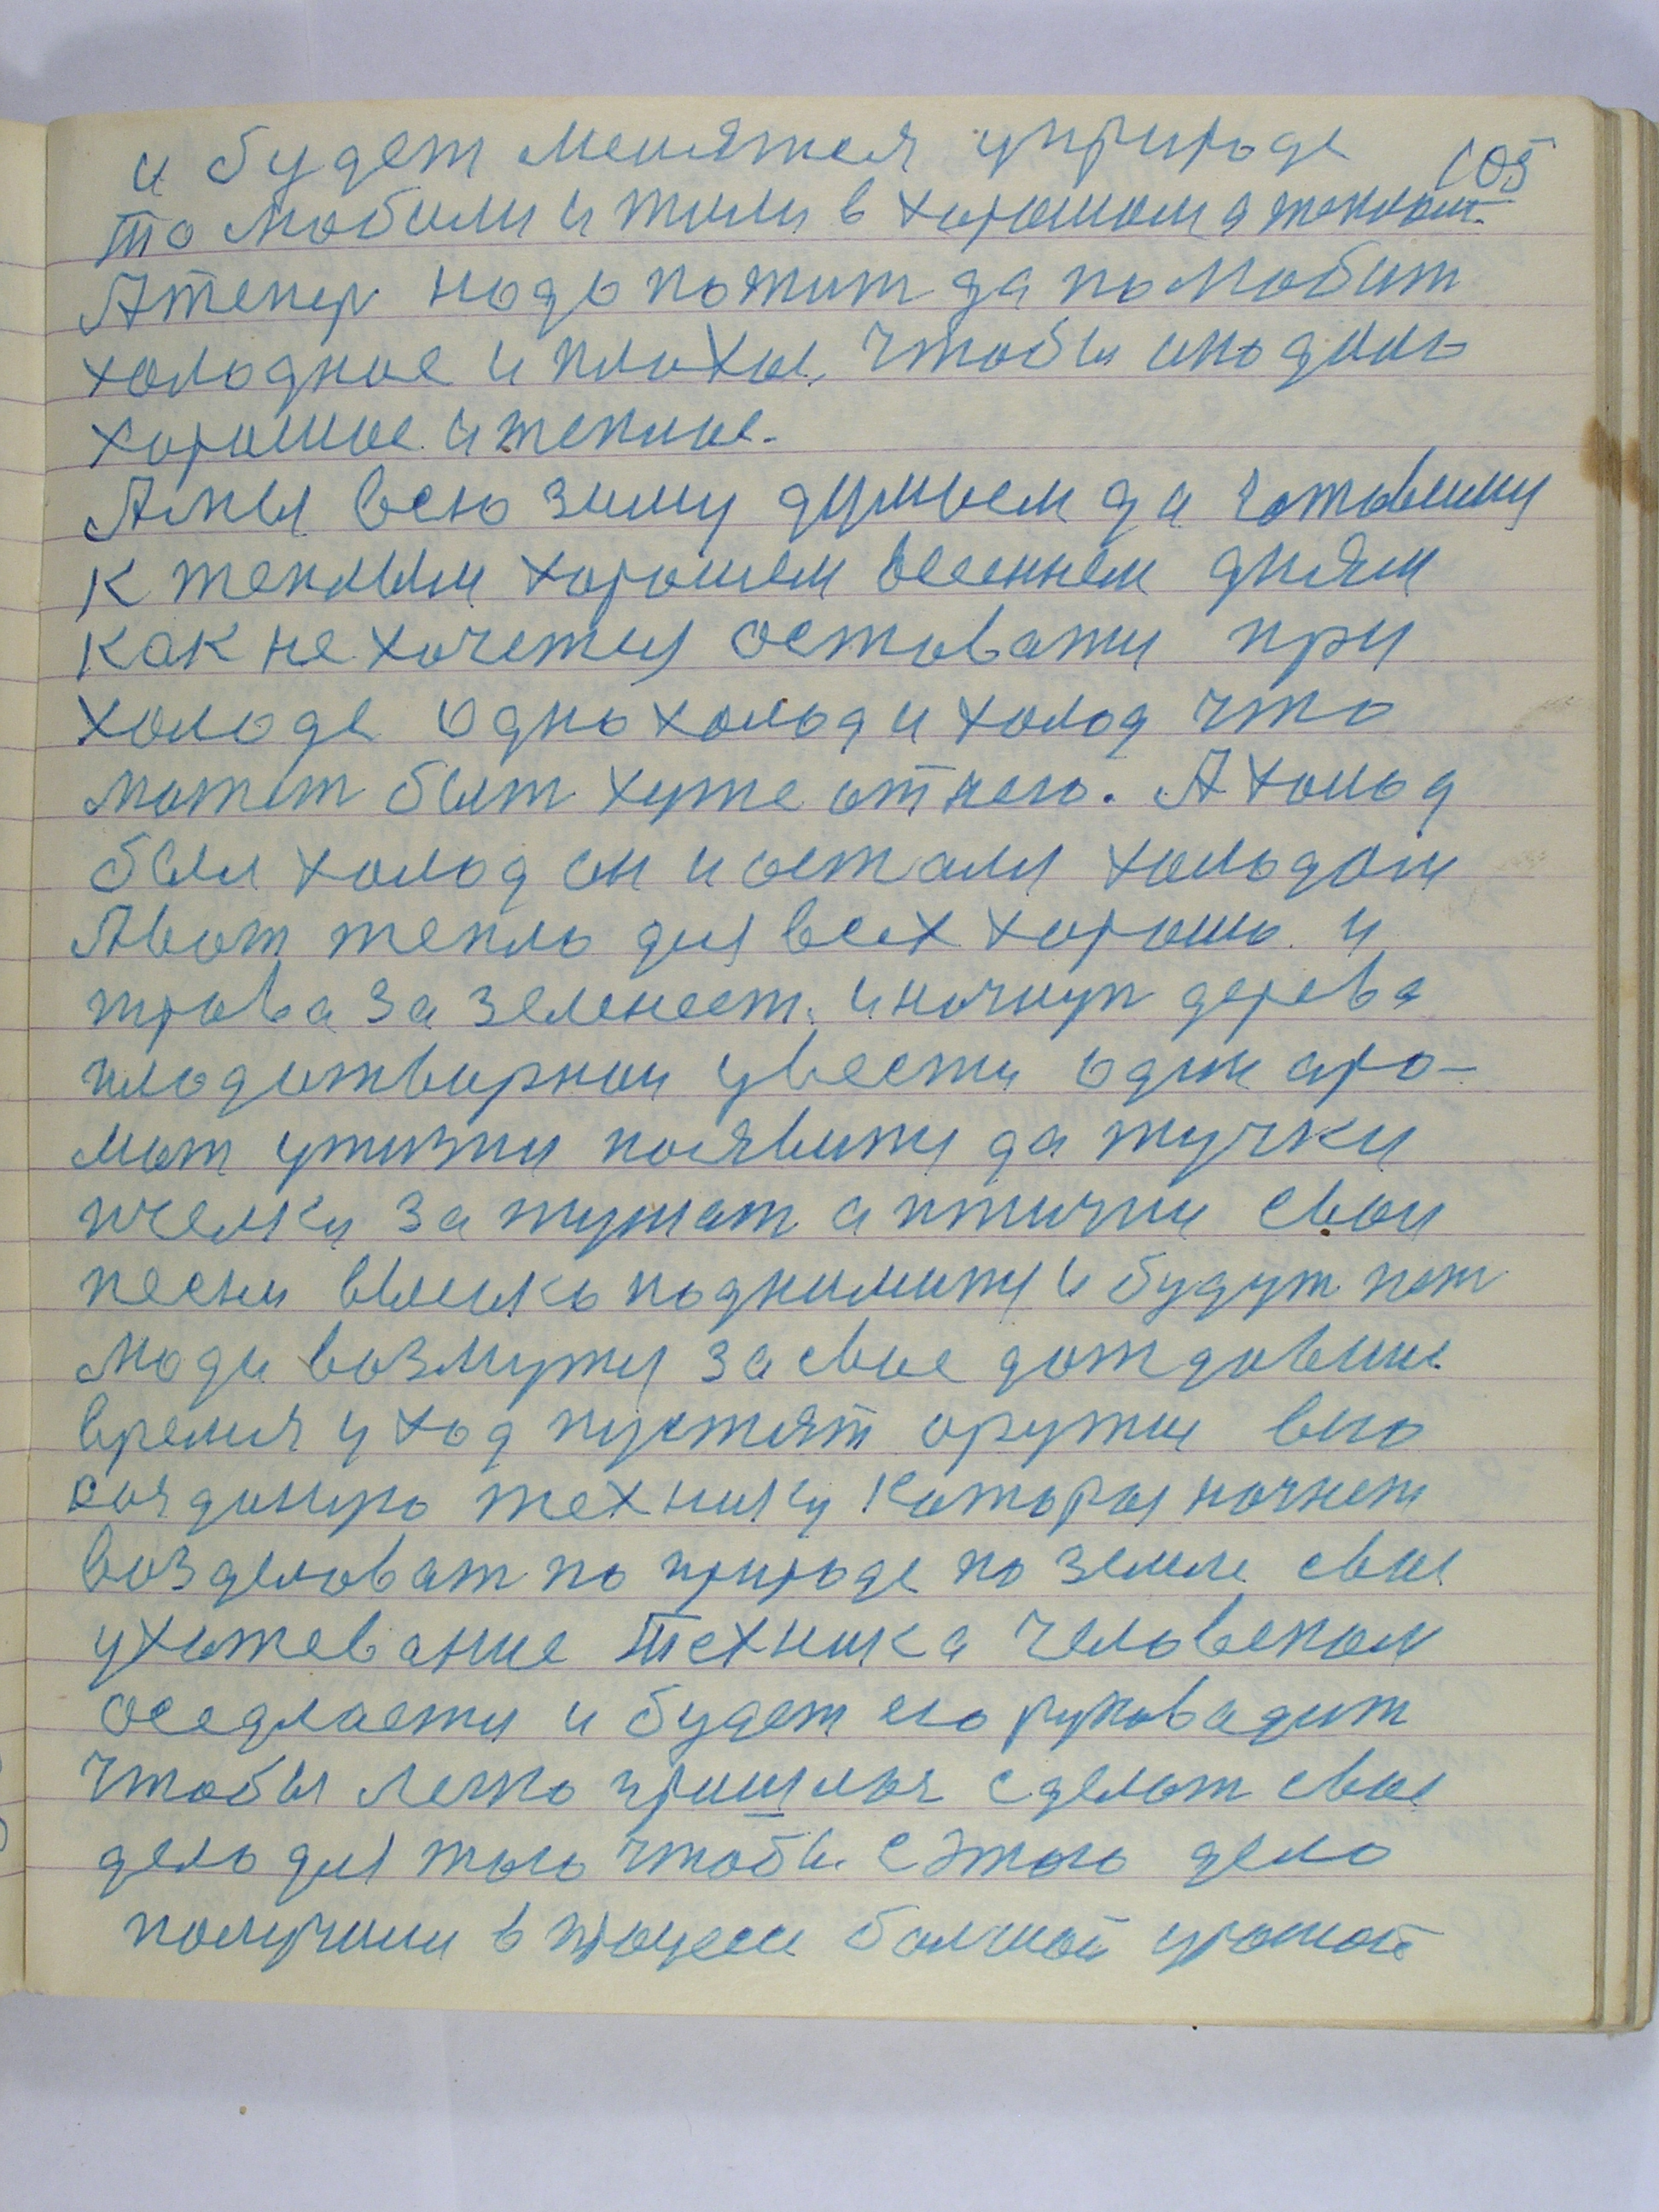 105
и будет менятся уприроде
то любили и жили в хорошом и теплом
Атепер надо пожит да полюбит
холодное и плохое, чтобы было
хорошое и теплое.
Амы всю зиму думаем да готовимся
к теплым хорошем весеннем дням
как не хочется оставатся при
холоде одно холод и холод что
может быт хуже от него. А холод
был холод он и остался холодом
Авот тепло для всех хорошо и
трова за зеленеет. и начнут дерева
плодотворнои цвести один аро-
мат ужизни появится да жучки
пчелки за жужжат а птички свои
песни высико поднимится и будут пет
люди возмутся за свое дождовшие
время у ход пустят оружии его
созданную технику которая начнет
возделоват по природе по земле свое
ухожевание техника человеком
оседлается и будет его руковадит
чтобы легко пришлос сделат свое
дело для того чтобы с этого дело
получили в процесе балшой урожай